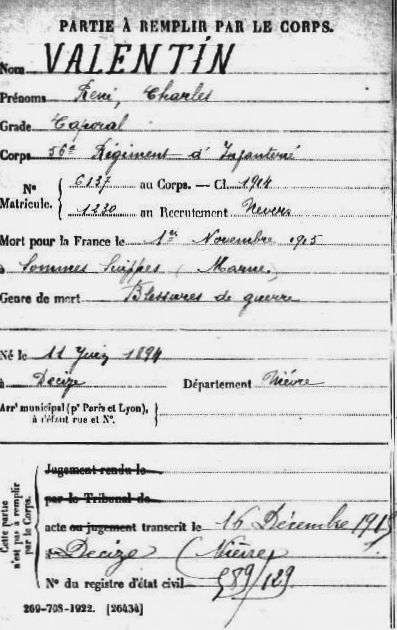 PARTIE À REMPLIR PAR LE CORPS.
Nom VALENTIN
Prénoms René, Charles
Grade Caporal
Corps 56e Régiment d'Infanterie
N° Matricule. 6137 au Corps. — Cl. 1914
1230 au Recrutement Nevers
Mort pour la France le 1er Novembre 1915
à Sommes Suippes (Marne)
Genre de mort Blessures de guerre
Né le 11 Juin 1894
à Decize Département Nièvre
Arrt municipal (pr Paris et Lyon), à défaut rue et N°.
Cette partie n'est pas à remplir par le Corps.
Jugement rendu le
par le Tribunal de
acte ou jugement transcrit le 16 Décembre 1915
à Decize (Nièvre)
N° du registre d'état civil 589/129
269-708-1922. [26434]